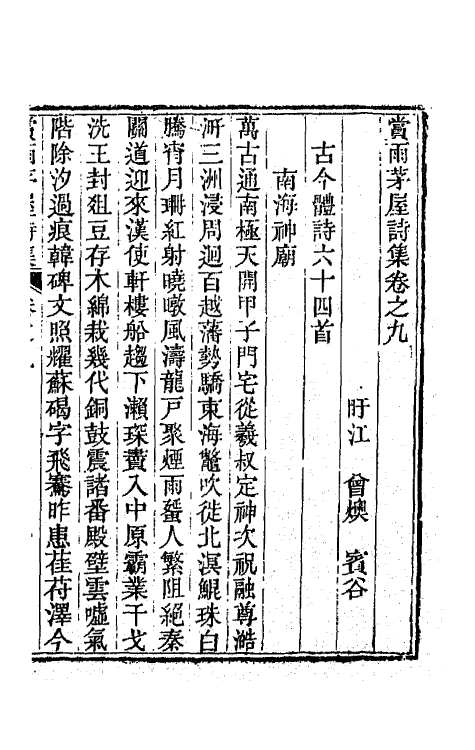 賞雨茅屋詩集卷之九
盱江　曾燠　賓谷
古今體詩六十四首
南海神廟
萬古通南極天開甲子門宅從羲叔定神次祝融尊澔
汧三洲浸周迴百越藩勢驕東海鼈吹徙北溟鯤珠白
騰宵月珊紅射曉暾風濤龍戸聚煙雨蜑人繁阻絕秦
關道迎來漢使軒樓船趨下瀨琛賮入中原霸業干戈
洗王封俎豆存木綿栽幾代銅鼓震諸番殿壁雲噓氣
階除汐過痕韓碑文照耀蘇碣字飛騫昨患萑苻澤今
賞雨茅屋詩集　卷之九